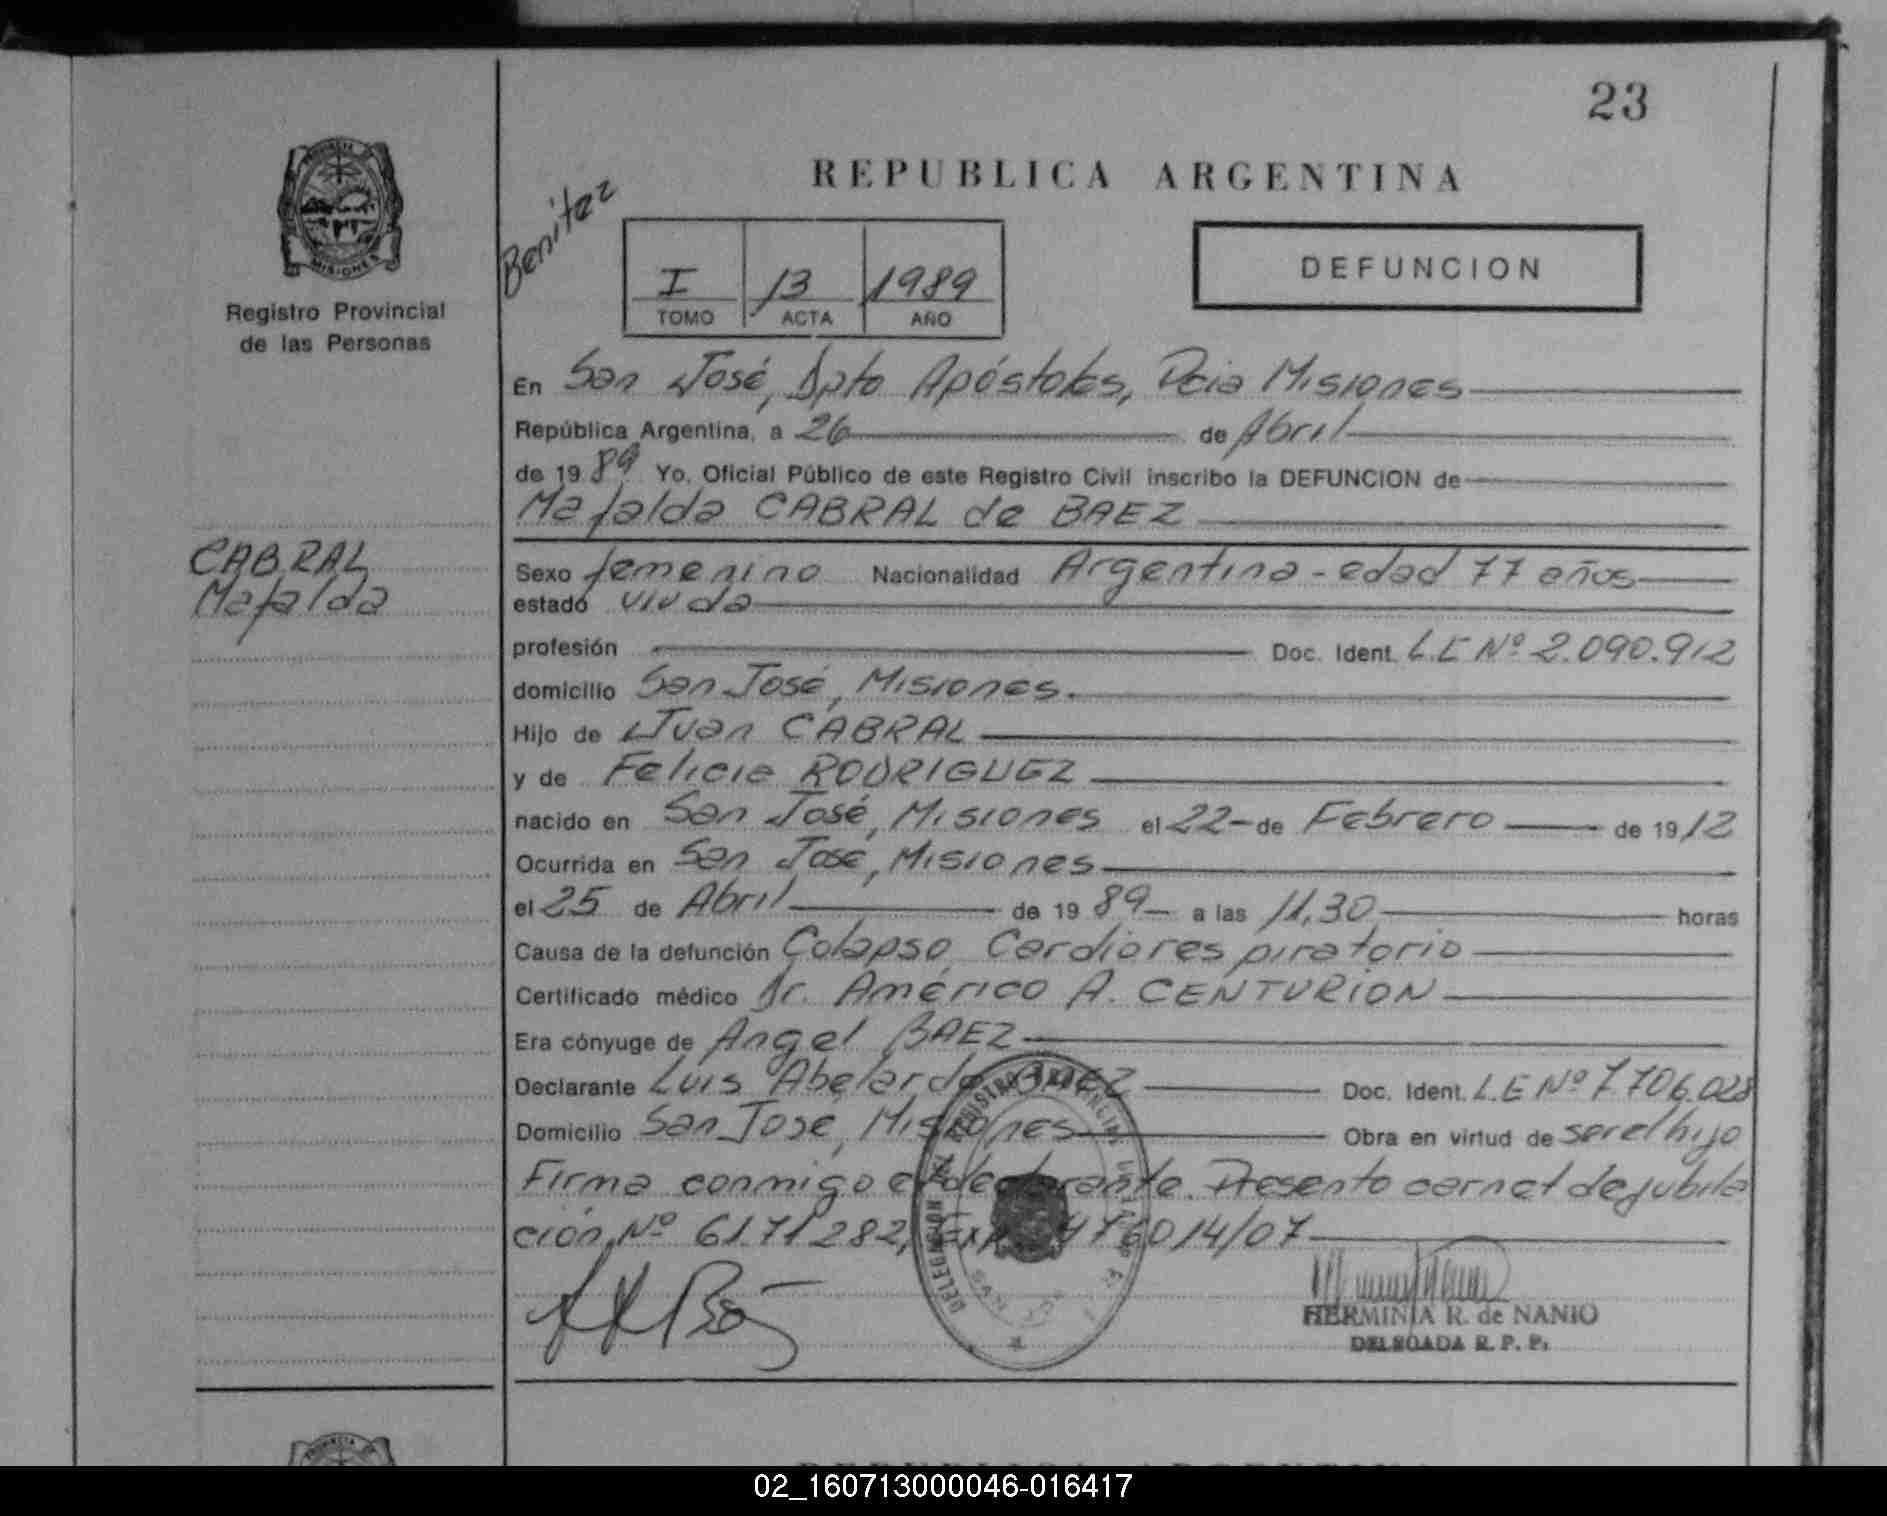 23
PROVINCIA DE
MISIONES
Registro Provincial
de las Personas
REPUBLICA ARGENTINA
Benitez
I 13 1989
TOMO ACTA AÑO
DEFUNCION
En San José, Dpto Apóstoles, Pcia Misiones
República Argentina, a 26 de Abril
de 19 89 Yo, Oficial Público de este Registro Civil inscribo la DEFUNCION de
Mafalda CABRAL de BAEZ
CABRAL
Mafalda
Sexo femenino Nacionalidad Argentina - edad 77 años
estado viuda
profesión Doc. Ident. L.E Nº 2.090.912
domicilio San José, Misiones.
Hijo de Juan CABRAL
y de Felicia RODRIGUEZ
nacido en San José, Misiones el 22 - de Febrero de 19 12
Ocurrida en San José, Misiones
el 25 de Abril de 19 89 a las 11,30 horas
Causa de la defunción Colapso Cardiorespiratorio
Certificado médico Dr. Américo A. CENTURION
Era cónyuge de Angel BAEZ
Declarante Luis Abelardo BAEZ Doc. Ident. L.E Nº 7.706.028
Domicilio San José, Misiones Obra en virtud de ser el hijo
Firma conmigo el declarante. Presento carnet de jubila
ción, Nº 61.71282, 476014/07
DELEGACIÓN DEL REGISTRO PROVINCIAL
HERMINIA R. de NANIO
DELEGADA R. P. P.
PROVINCIA DE
REPUBLICA ARGENTINA
02_160713000046-016417